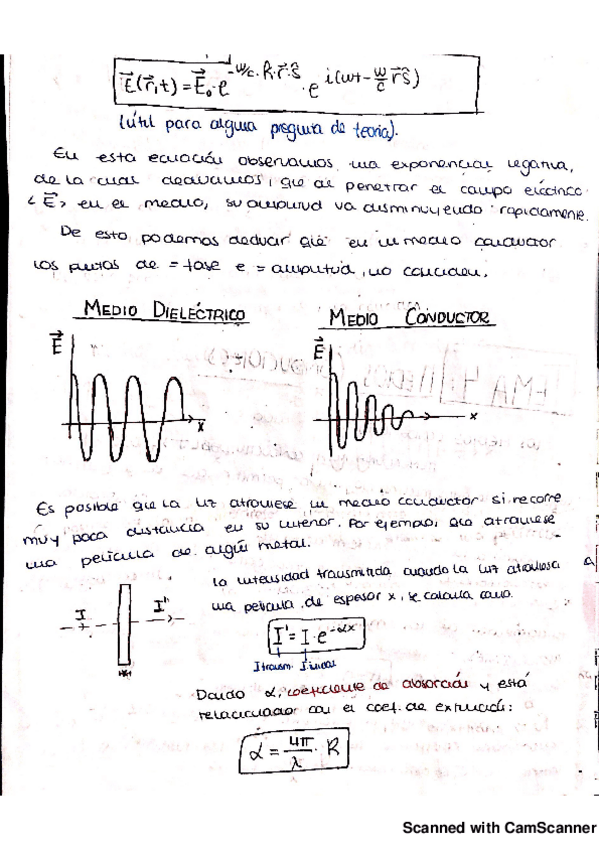 E⃗(r⃗,t) = E⃗₀·e^(-w/c·R·r⃗·ŝ)·e^(i(wt - w/c r⃗ŝ))
(útil para alguna pregunta de teoría).
En esta ecuación observamos una exponencial negativa,
de la cual deducimos, que al penetrar el campo eléctrico
<E⃗> en el medio, su amplitud va disminuyendo rápidamente.
De esto podemos deducir que en un medio conductor
los puntos de = fase e = amplitud, no coinciden.
MEDIO DIELÉCTRICO
MEDIO CONDUCTOR
E⃗
x
E⃗
x
Es posible que la luz atraviese un medio conductor si recorre
muy poca distancia en su interior. Por ejemplo, que atraviese
una película de algún metal.
I
I'
la intensidad transmitida cuando la luz atraviesa
una película de espesor x, se calcula como.
I' = I·e^(-αx)
I transm. I incid.
Dando α, coeficiente de absorción y está
relacionado con el coef. de extinción:
α = 4π/λ · R
Scanned with CamScanner